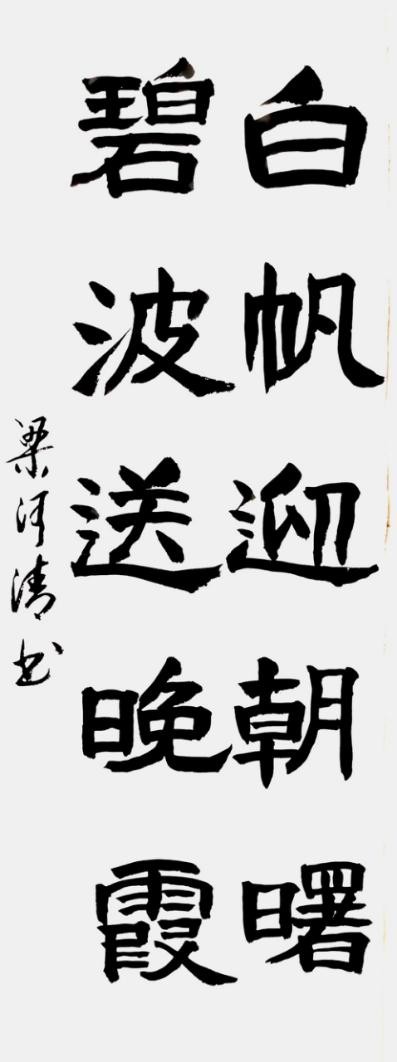 白帆迎朝曙
碧波送晚霞
梁河清书